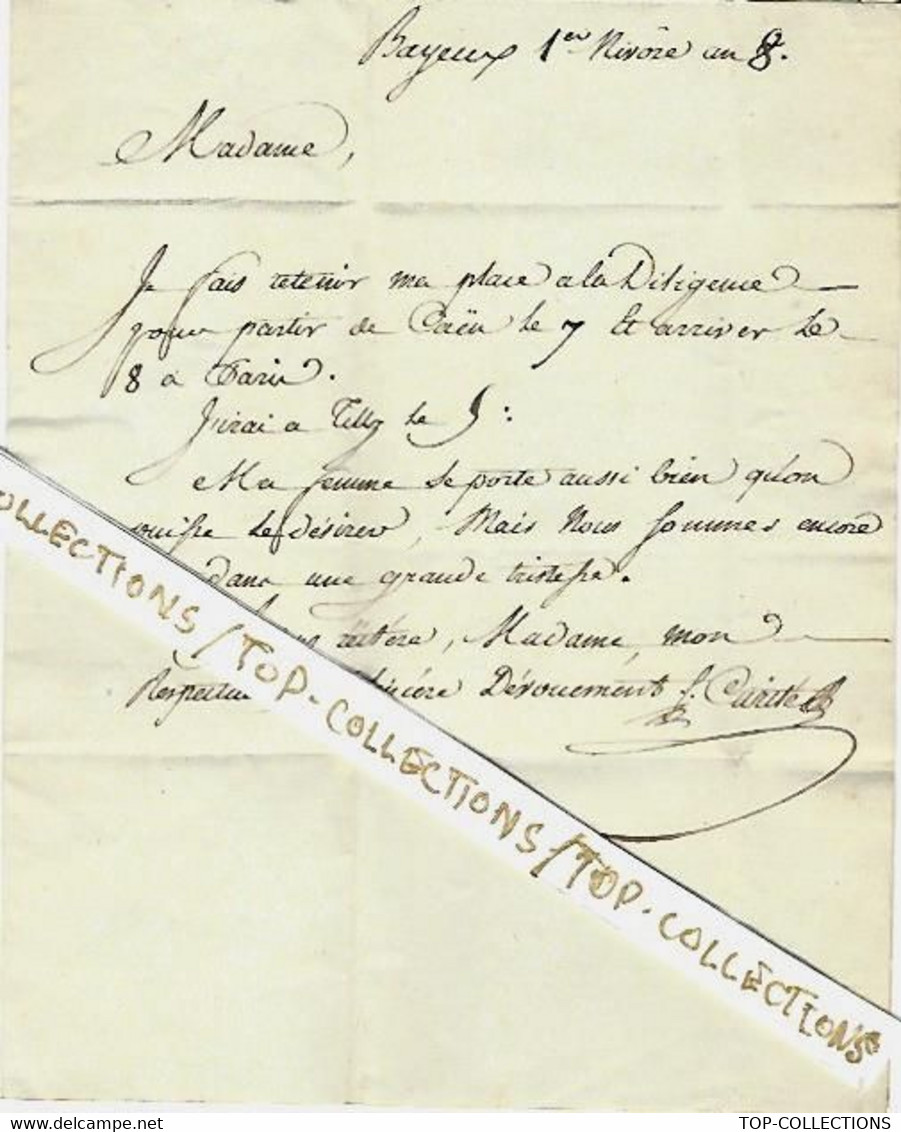 Bayeux 1er Nivôse an 8.
Madame,
Je fais retenir ma place a la Diligence
pour partir de Caën le 7 Et arriver le
8 a Paris.
J'irai a Tilly le 5 :
Ma femme se porte aussi bien qu'on
puisse le désirer, Mais Nous sommes encore
dans une grande tristesse.
réitére, Madame, mon
Respectu Sincére Dévouement f. Carité
COLLECTIONS / TOP-COLLECTIONS / TOP-COLLECTIONS
TOP-COLLECTIONS